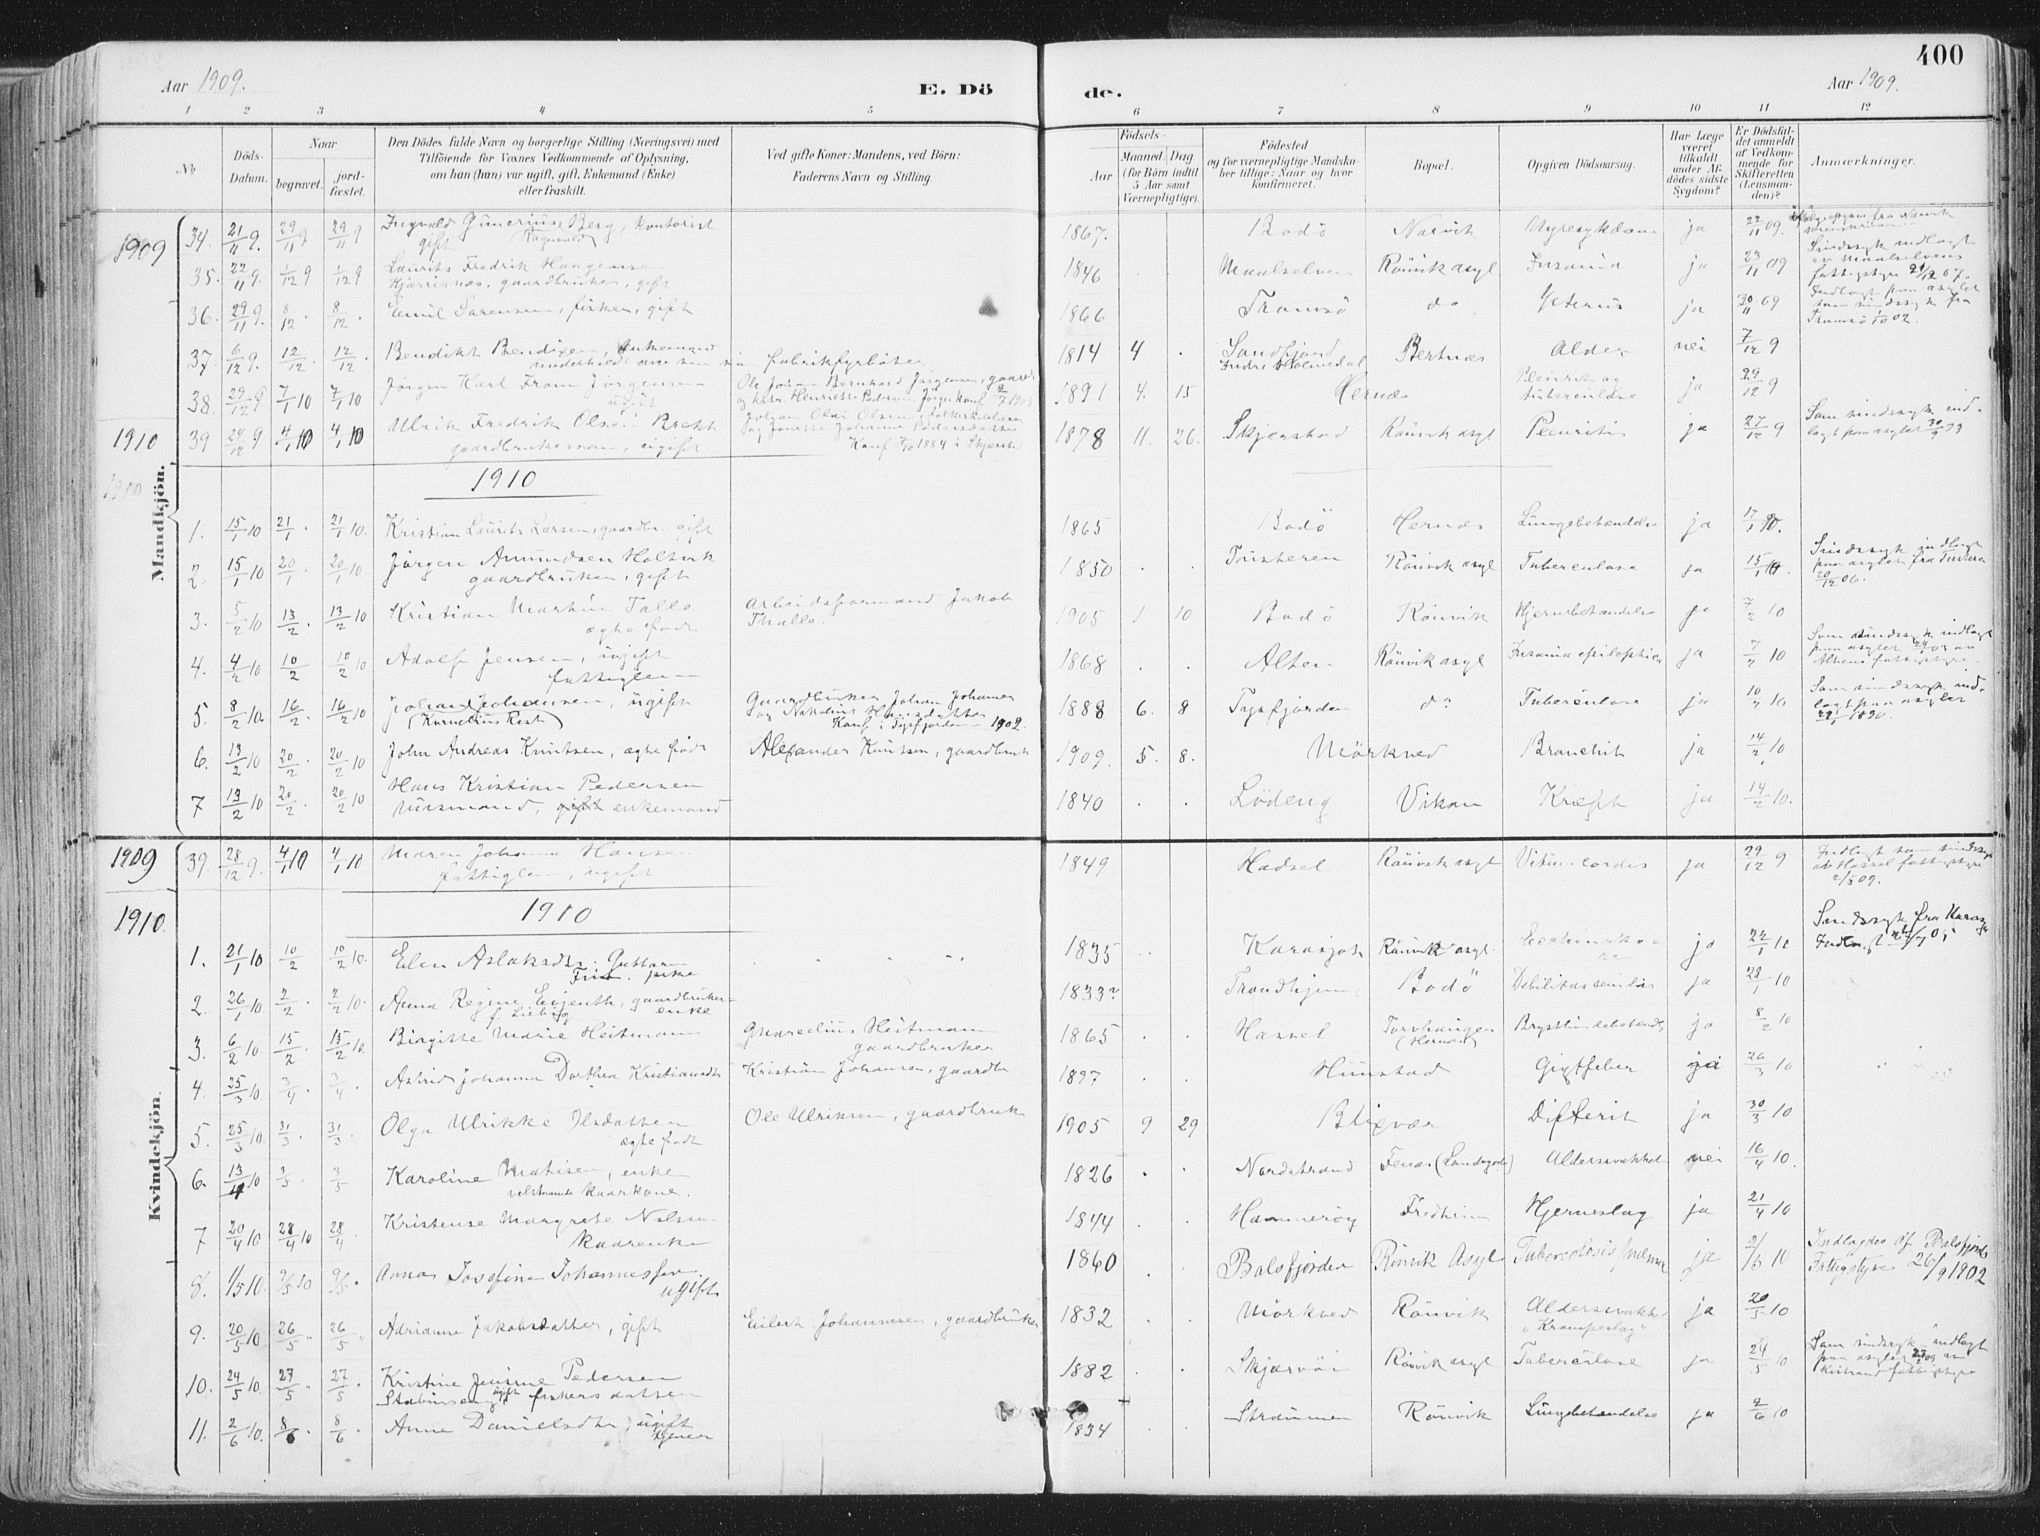 Aar 1909.
E. Dö
de.
Aar 1909.
400
1 2 3 4 5 6 7 8 9 10 11 12
No
Döds-Datum.
Naar
begravet.
jord-fæstet.
Den Dödes fulde Navn og borgerlige Stilling (Næringsvei) med
Tilföiende for Voxnes Vedkommende af Oplysning,
om han (hun) var ugift, gift, Enkemand (Enke)
eller fraskilt.
Ved gifte Koner: Mandens, ved Börn:
Faderens Navn og Stilling.
Födsels-
Aar
Maaned. Dag
(for Börn indtil
5 Aar samt
Værnepligtige).
Födested
og for værnepligtige Mandska-
ber tillige: Naar og hvor
konfirmeret.
Bopæl.
Opgiven Dödsaarsag.
Har Læge
været
tilkaldt
under Af-
dödes sidste
Sygdom?
Er Dödsfal-
det anmeldt
af Vedkom-
mende for
Skifteretten
(Lensman-
den)?
Anmærkninger.
Mandkjön.
1909
34. 21/11 9. 29/11 9 29/11 9 Ingvald Gunerius Berg, kontorist
gift Ragnvald
1867. Bodö Narvik Nyresykdom ja 22/11 09.
35. 22/11 9. 1/12 9 1/12 9 Laurits Fredrik Haagensen
Kjærrisnes, gaardbruker, gift
1846 Maalselven Rönvik asyl Insania ja 23/11 09 Sindssyk indlagt
av Maalselvens
fattigstyr 21/12 07.
36. 29/11 9. 8/12 . 8/12 . Emil Sørensen, fisker, gift
1866 Tromsö do Icterus ja 30/11 09 Indlagt paa asylet
som sindssyk fra
Tromsö 1/10 02.
37. 6/12 9. 12/12 . 12/12 . Bendikt Bendixen, Enkemand
underholdt av sin sön fabrikfyrböter
1814 4 . Sandfjord
Indre Holmedal Bertnes Alder nei 7/12 9
38. 29/12 9 7/1 10 7/1 10 Jörgen Karl From Jörgensen
ugift
Ole Johan Bernhard Jørgensen, gaardb
1891 4. 15 Hernes Pleurit og
tuberculose ja 29/12 9
39 24/12 9 4/1 10 4/1 10 Ulrik Fredrik Olsen Brekk
gaardbrukersøn, ugift
Konf 1884 i Skjerstad
1878 11. 26. Skjerstad Rönvik asyl Pleuritis ja 27/12 9 Som sindssyk ind-
lagt paa asylet 30/9 03
1910
1910
1910
1. 15/1 10 21/1 . 21/1 10. Kristian Laurits Larsen, gaardbr. gift
1865 Bodö Hernes Lungebetændelse ja 17/1 10.
2. 15/1 10 20/1 . 20/1 10 Jørgen Amundsen Holtvik
gaardbruker, gift
1850 . . Tusteren Rönvik asyl Tuberculose ja 15/1 10 Sindssyk indlagt
paa asylet fra Tusteren
20/12 06.
3. 5/2 10 13/2 . 13/2 10 Kristian Martin Talle
ægte födt
Arbeidsformand Jakob
Thalle.
1905 1 10 Bodö Rönvik Hjernebetændelse ja 7/2 10
4. 4/2 10 10/2 10/2 10 Adolf Jensen, ugift
fattiglem
1868 . . Alten Rönvik asyl Insania epileptica ja 7/2 10 Som sindssyk indlagt
paa asylet 24/ 03 av
Altens fattigstyr.
5. 8/2 10. 16/2 . 16/2 10 Johan Johansen, ugift
(Kornelius Rist)
Gaardbruker Johan Johansen
Konf. i Tysfjorden 1902.
1888 6. 8 Tysfjorden do Tuberculose ja 10/2 10 Som sindssyk ind-
lagt paa asylet
6. 13/2 10 20/2 . 20/2 10 John Andreas Knutsen, ægte födt
Alexander Knutsen, gaardbruk
1909. 5. 8. Mörkved Bronchit ja 14/2 10
7 13/2 10 20/2 . 20/2 10 Hans Kristian Pedersen
husmand, gift enkemand
1840 . . Lödeng Vikan Kræft ja 14/2 10.
Kvindekjön.
1909
39. 28/12 9. 4/1 10 4/1 10 Maren Johanna Hansen
fattiglem, ugift
1849 Hadsel Rönvik asyl Vitium cordis ja 29/12 9 Indlagt som sindssyk
av Hassel fattigstyre
2/5 09.
1910.
1910
1. 21/1 10 10/2 10/2 10. Elen Aslaksdtr. Guttorm
Fisk. pike
1835 . . Karasjok Rönvik asyl. ja 22/1 10 Sindssyk fra Karasj
2. 26/1 10 2/2 . 2/2 10. Anna Regine Eijenth, gaardbruker-
f. Lieberg enke
1833? Trondhjem. Bodö Debilitas senilis ja 28/1 10
3. 6/2 10 15/2 . 15/2 10. Birgitte Marie Heitmann
Gmarcelius Heitmann
gaardbruker
1865 . . Hassel Torvhaugen
(Hernes) ja 8/2 10
4. 25/3 10. 3/4 . 3/4 . Astrid Johanna Dorthea Kristiansdtr
Kristian Johansen, gaardbr
1897 . . Hunstad Gigtfeber ja 26/3 10
5. 25/3 10. 31/3 . 31/3 . Olga Ulrikke Olsdatter
ægte födt
Ole Ulriksen, gaardbruk
1905 9 29 Blixvær Difterit ja 30/3 10
6. 13/4 10 3/5 3/5 Karoline Matisen, enke
velstaaende kaarkone.
1826 . . Nordstrand Fenes (Landegode) Aldersvakhet nei 16/4 10.
7 20/4 10 28/4 10 28/4 . Kristense Margrete Nilsen
kaarenke
1844 . . Hammeröy Fredheim Hjerneslag ja 21/4 10
8. 1/5 10. 9/5 10 9/5 . Annas Josefine Johannessen.
ugift
1860 . . Balsfjorden Rönvik Asyl Tuberculosis pulmon ja 2/5 10 Indlagdes af Balsfjords
Fattigstyre 26/9 1902
9. 20/5 10. 26/5 . 26/5 . Adriane Jakobsdatter, gift
Eilert Johannesen, gaardbruker
1832 . . Mörkved Rönvik Aldersvakhet
"Krampeslag" ja 20/5 10
10. 24/5 10. 27/5 . 27/5 . Kristine Jensine Pedersen
ugift fiskersdatter
1882 . . Skjærvöi Rönvik asyl Tuberculose ja 24/5 10 Som sindssyk indlagt
fattigstyre
11. 2/6 10. 8/6 8/6 Anne Danielsdtr, ugift
1834 . . Straumen Rönvik Lungebetændelse ja 2/6 10